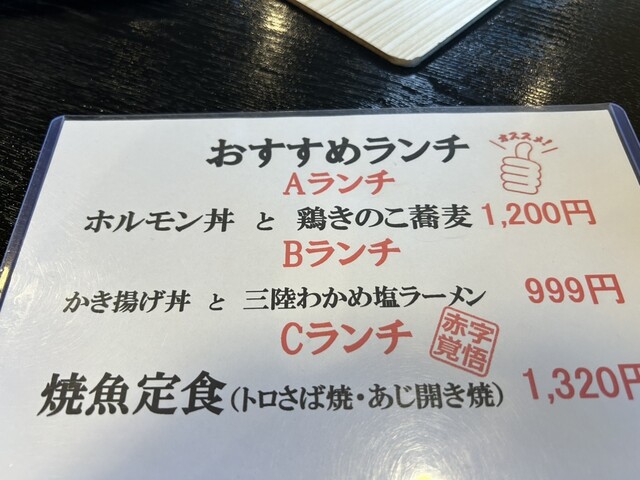 おすすめランチ
オススメ!
Aランチ
ホルモン丼 と 鶏きのこ蕎麦 1,200円
Bランチ
かき揚げ丼 と 三陸わかめ塩ラーメン 999円
Cランチ
赤字
覚悟
焼魚定食(トロさば焼・あじ開き焼) 1,320円